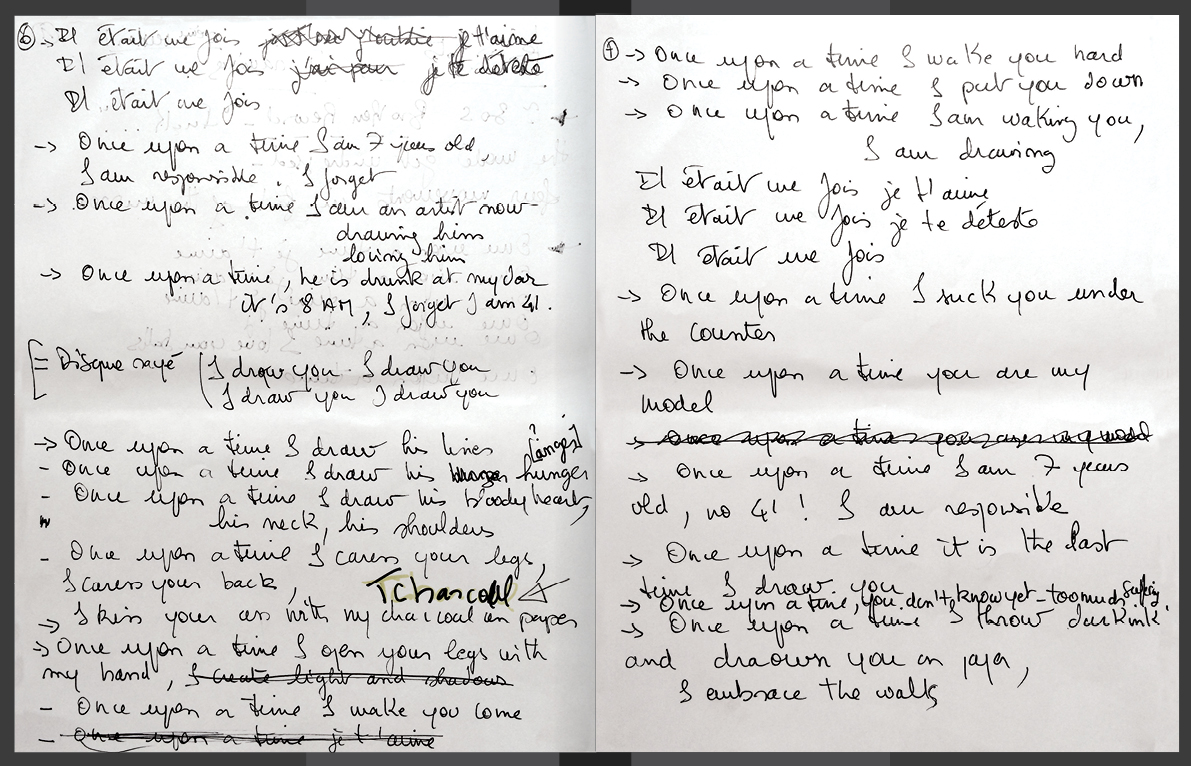 ⑥ -> Il était une fois je t'aime
Il était une fois j'ai peur je te déteste
Il était une fois
-> Once upon a time I am 7 years old
I am responsible. I forget
-> Once upon a time I am an artist now
drawing him
loving him
-> Once upon a time, he is drunk at my bar
it's 8 AM, I forget I am 41.
Disque rayé (I draw you I draw you
I draw you I draw you
-> Once upon a time I draw his lines [linges]
- Once upon a time I draw his hunger
- Once upon a time I draw his bloody heart,
his neck, his shoulders
- Once upon a time I caress your legs,
I caress your back,
Tcharcoal
-> I kiss your ass with my charcoal on paper
-> Once upon a time I open your legs with
my hand, I create light and shadows
- Once upon a time I make you come
- Once upon a time je t'aime
⑦ -> Once upon a time I wake you hard
-> Once upon a time I put you down
-> Once upon a time I am waking you,
I am drawing
Il était une fois je t'aime
Il était une fois je te déteste
Il était une fois
-> Once upon a time I suck you under
the counter
-> Once upon a time you are my
model
-> Once upon a time you are my model
-> Once upon a time I am 7 years
old, no 41! I am responsible
-> Once upon a time it is the last
time I draw you
-> Once upon a time, you don't know yet - too much
-> Once upon a time I throw dark ink
and draown you on
I embrace the walls